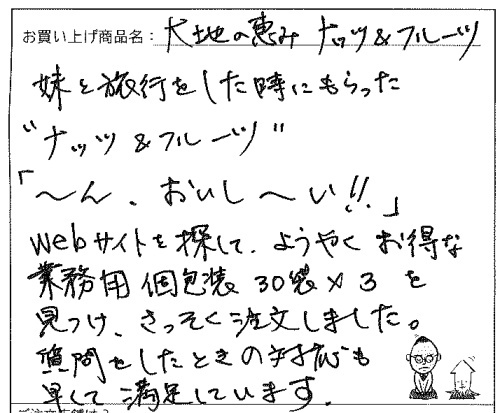 お買い上げ商品名: 大地の恵み ナッツ&フルーツ
妹と旅行をした時にもらった
"ナッツ&フルーツ"
「〜ん、おいし〜い!!」
webサイトを探して、ようやくお得な
業務用個包装30袋×3を
見つけ、さっそく注文しました。
質問をしたときの対応も
早くて満足しています.